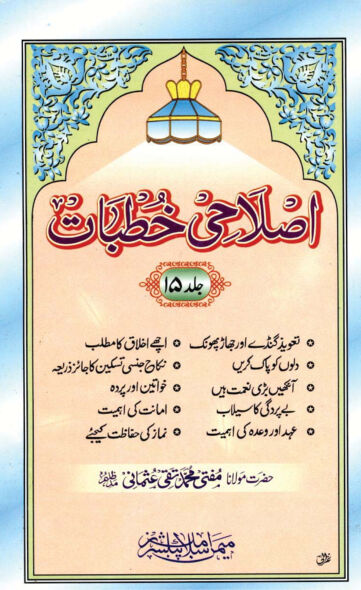 اصلاحی خطبات
جلد ۱۵
تعویذ گنڈے اور جھاڑ پھونک
دلوں کو پاک کریں
آنکھیں بڑی نعمت ہیں
بے پردگی کا سیلاب
عہد اور وعدہ کی اہمیت
اچھے اخلاق کا مطلب
نکاح جنسی تسکین کا جائز ذریعہ
خواتین اور پردہ
امانت کی اہمیت
نماز کی حفاظت کیجئے
حضرت مولانا مفتی محمد تقی عثمانی مدظلہم
میمن اسلامک پبلشرز